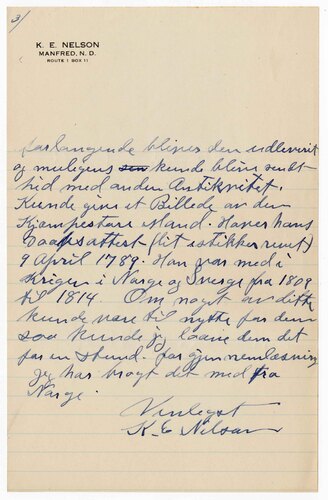 3/
K. E. NELSON
MANFRED, N. D.
ROUTE 1 BOX 11
forlangende blives den udleverit
og muligens kunde blive sendt
hid med anden Antikvitet.
Kunde give et Billede av den
Kjæmpestore Mand. Haver hans
Daapsattest (lit istikker revet)
9 April 1789. Han var med i
Krigen i Norge og Sverge fra 1809
til 1814. Om noget av dette
kunde være til nytte for dem
saa kunde jeg laane dem det
for en stund. for gjennemlæsning
jeg har bragt det med fra
Norge.
Venligst
K. E Nelson